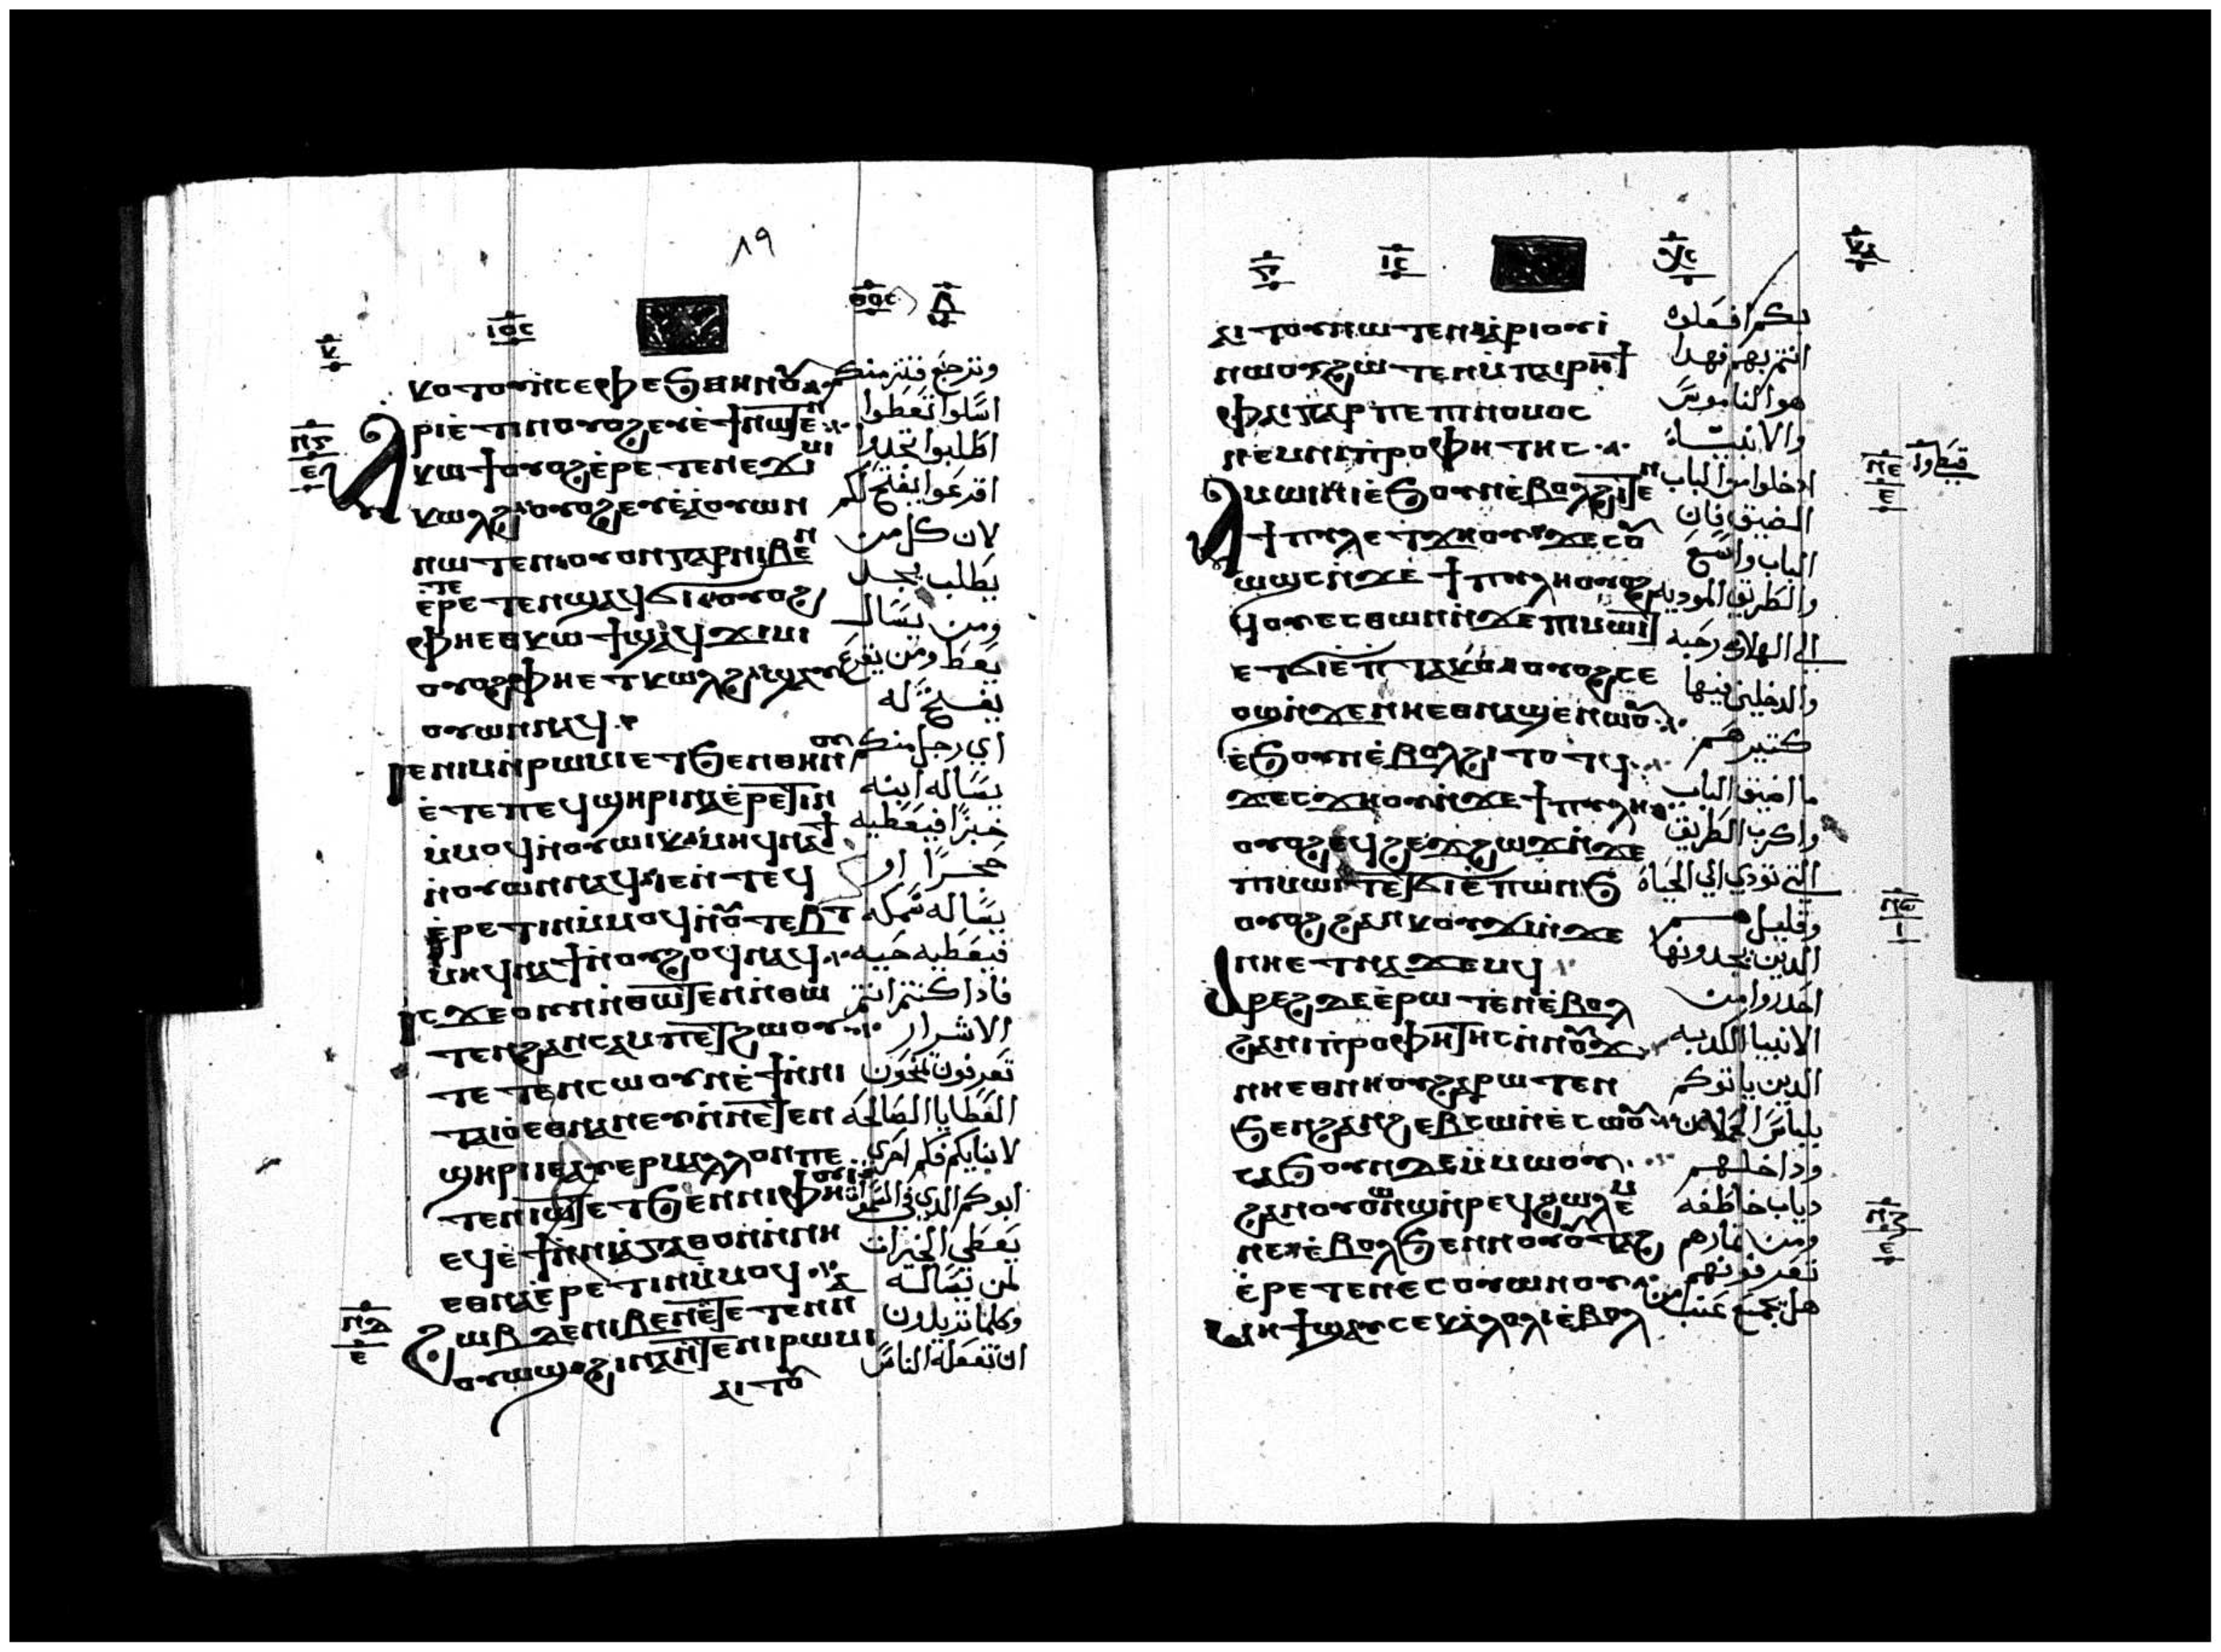 ٨٩
ⲕⲟⲧⲟⲩⲛ̇ⲥⲉⲫⲉϧⲑⲏⲛⲟⲩ
ⲁⲣⲓⲉ̇ⲧⲓⲛⲟⲩⲟϩⲉⲩⲉ̇ϯⲛⲱⲧⲉⲛ
ⲕⲱϯⲟⲩⲟϩⲉ̇ⲣⲉⲧⲉⲛⲉϫⲓⲙⲓ
ⲕⲱⲗϩⲟⲩⲟϩⲉⲩⲉ̇ⲁ̇ⲟⲩⲱⲛ
ⲛⲱⲧⲉⲛⲟⲩⲟⲛⲅⲁⲣⲛⲓⲃⲉⲛ
ⲉ̇ⲣⲉⲧⲉⲛϣⲁϥϭⲓⲟⲩⲟϩ
ⲫⲏⲉⲑⲕⲱϯϣⲁϥϫⲓⲙⲓ
ⲟⲩⲟϩⲫⲏⲉⲧⲕⲱⲗϩϣⲁⲩ
ⲟⲩⲱⲛⲛⲁϥ
ⲓⲉⲛⲓⲙⲛ̇ⲣⲱⲙⲓⲉⲧϧⲉⲛⲑⲏⲛⲟⲩ
ⲉ̇ⲧⲉⲡⲉϥϣⲏⲣⲓⲛⲁⲉ̇ⲣⲉⲧⲓⲛ
ⲙ̇ⲙⲟϥⲛ̇ⲟⲩⲱⲓⲕⲙⲏϥⲛⲁϯ
ⲛ̇ⲟⲩⲱⲛⲓⲛⲁϥⲓⲉⲛ̇ⲧⲉϥ
ⲉ̇ⲣⲉⲧⲓⲛⲙ̇ⲙⲟϥⲛ̇ⲟⲩⲧⲉⲃⲧ
ⲙⲏϥⲛⲁϯⲛ̇ⲟⲩϩⲟϥⲛⲁϥ
ⲓⲥϫⲉⲟⲩⲛⲛ̇ⲑⲱⲧⲉⲛⲛ̇ⲑⲱ
ⲧⲉⲛϩⲁⲛⲥⲁⲙⲡⲉⲧϩⲱⲟⲩ
ⲧⲉⲧⲉⲛⲥⲱⲟⲩⲛⲉ̇ϯⲛ̇ⲛⲓ
ⲧⲁⲓⲟⲉⲑⲛⲁⲛⲉⲩⲛ̇ⲛⲉⲧⲉⲛ
ϣⲏⲣⲓⲓⲉⲁⲩⲉⲣⲙⲁⲗⲗⲟⲛⲡⲉ
ⲧⲉⲛⲓⲱⲧⲉⲧϧⲉⲛⲛⲓⲫⲏⲟⲩⲓ
ⲉϥⲉ̇ϯⲛ̇ⲛⲓⲁ̇ⲅⲁⲑⲟⲛⲛ̇ⲛⲏ
ⲉⲑⲛⲁⲉ̇ⲣⲉⲧⲓⲛⲙ̇ⲙⲟϥ
ϩⲱⲃⲇⲉⲛⲓⲃⲉⲛⲉ̇ⲧⲉⲧⲉⲛⲛ
ⲟⲩⲱϣϩⲓⲛⲁⲛ̇ⲧⲉⲛⲓⲣⲱⲙⲓ
ⲁⲓⲧⲟⲩ
وترجع فتزمنكم
اسلوا تعطوا
اطلبوا تجدوا
اقرعوا يفتح لكم
لان كل من
يطلب يجد
ومن يسال
يعطا ومن يقرع
يفتح له
اي رجل منكم
يساله ابنه
خبزًا فيعطيه
حجرًا او
يساله سمكه
فيعطيه حيه
فاذا كنتم انتم
الاشرار
تعرفون تمنحون
العطايا الصالحه
لابنايكم فكم احرى
ابوكم الذي في السموات
يعطي الخيرات
لمن يساله
وكلما تريدون
ان تفعله الناس
ⲁⲓⲧⲟⲩⲛⲱⲧⲉⲛⲁ̇ⲣⲓⲟⲩⲓ̇
ⲛⲱⲟⲩϩⲱⲧⲉⲛⲙ̇ⲡⲁⲓⲣⲏϯ
ⲫⲁⲓⲅⲁⲣⲡⲉⲡⲓⲛⲟⲙⲟⲥ
ⲛⲉⲙⲛⲓⲡ̇ⲣⲟⲫⲏⲧⲏⲥ
ⲁⲙⲱⲓⲛⲓⲉ̇ϧⲟⲩⲛⲉ̇ⲃⲟⲗϩⲓⲧⲉⲛ
ϯⲡⲩⲗⲉⲧϫⲏⲟⲩϫⲉⲥⲟⲩ
ⲱϣⲥⲛ̇ϫⲉ̇ϯⲡⲩⲗⲏⲟⲩⲟϩ
ϥⲟⲩⲉⲥⲑⲱⲛⲛ̇ϫⲉⲡⲓⲙⲱⲓⲧ
ⲉⲧϭⲓⲉ̇ⲡⲧⲁⲕⲟⲟⲩⲟϩⲥⲉ
ⲟϣⲛ̇ϫⲉⲛⲏⲉⲑⲛⲁϣⲉⲛⲱⲟⲩ
ⲉ̇ϧⲟⲩⲛⲉ̇ⲃⲟⲗϩⲓⲧⲟⲧϥ
ϫⲉⲥϫⲏⲟⲩⲛ̇ϫⲉϯⲡⲩⲗⲏ
ⲟⲩⲟϩⲉϥϩⲉϫϩⲱϫⲛ̇ϫⲉ
ⲡⲓⲙⲱⲓⲧⲉⲧϭⲓⲉ̇ⲡⲱⲛϧ
ⲟⲩⲟϩϩⲁⲛⲕⲟⲩϫⲓⲛ̇ϫⲉ
ⲛⲏⲉⲧⲛⲁϫⲉⲙϥ
ⲁⲣⲉϩⲇⲉⲉ̇ⲣⲱⲧⲉⲛⲉ̇ⲃⲟⲗ
ϩⲁⲛⲓⲡ̇ⲣⲟⲫⲏⲧⲏⲥⲛ̇ⲛⲟⲩϫ
ⲛⲏⲉⲑⲛⲏⲟⲩϩⲁⲣⲱⲧⲉⲛ
ϧⲉⲛϩⲁⲛϩⲉⲃⲥⲱⲛ̇ⲉ̇ⲥⲱⲟⲩ
ⲥⲁϧⲟⲩⲛⲇⲉⲙ̇ⲙⲱⲟⲩ
ϩⲁⲛⲟⲩⲱⲛϣⲛ̇ⲣⲉϥϩⲱⲗⲉⲙ
ⲛⲉⲉ̇ⲃⲟⲗϧⲉⲛⲛⲟⲩⲟⲩⲧⲁϩ
ⲉ̇ⲣⲉⲧⲉⲛⲉⲥⲟⲩⲱⲛⲟⲩ
ⲙⲏϯϣⲁⲩⲥⲉⲕⲁ̇ⲗⲟⲗⲓⲉ̇ⲃⲟⲗ
بكم افعلوه
انتم بهم فهدا
هو الناموس
والانبياء
ادخلوا من الباب
الضيق فان
الباب واسع
والطريق الموديه
الى الهلاك رحبه
والدخلين فيها
كثير هم
ما اضيق الباب
واكرب الطريق
التي تودي الي الحياة
وقليل هم
الدين يجدونها
احدروا من
الانبيا الكدبه
الدين ياتوكم
بلباس الحملان
وداخلهم
دياب خاطفه
ومن ثمارهم
تعرفونهم
هل تجمع عنب من